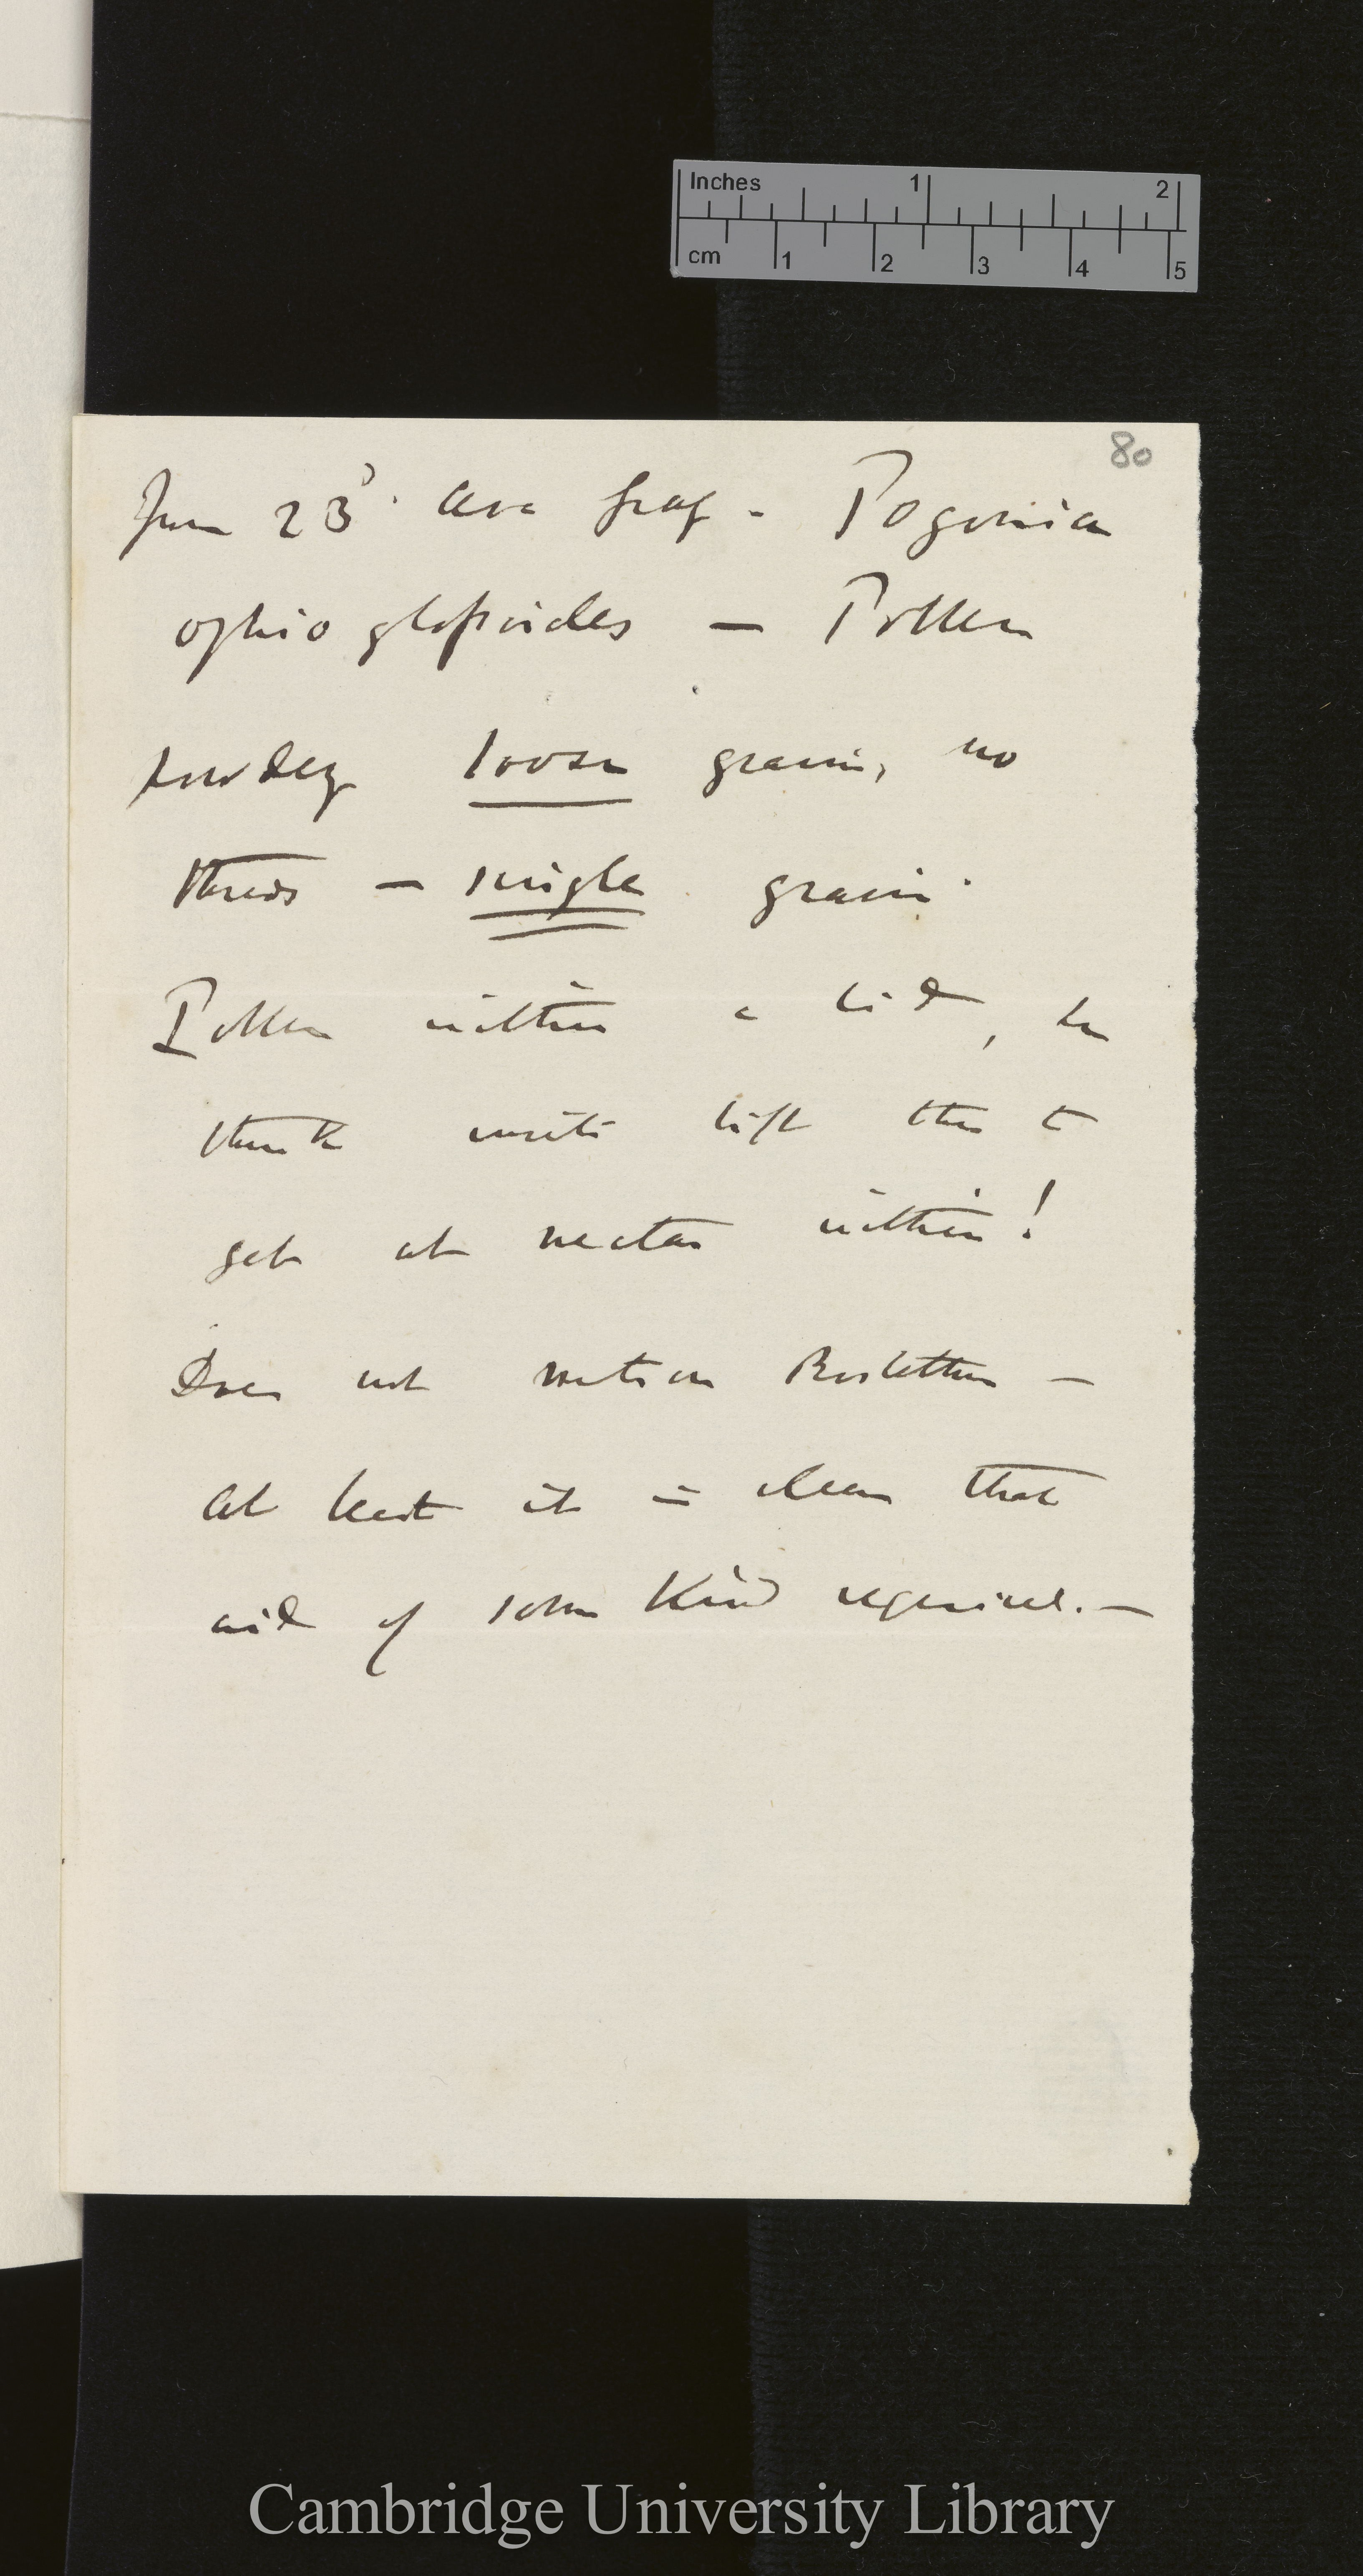 Inches 1 2
cm 1 2 3 4 5
80
June 23d. Asa Gray - Pogonia
ophioglossoides — Pollen
powdery loose grains, no
threads — single grains.
Pollen within a lid, he
thinks insects lift this to
get at nectar within!
Does not mention Rostellum —
At least it is clear that
aid of some kind required. —
Cambridge University Library